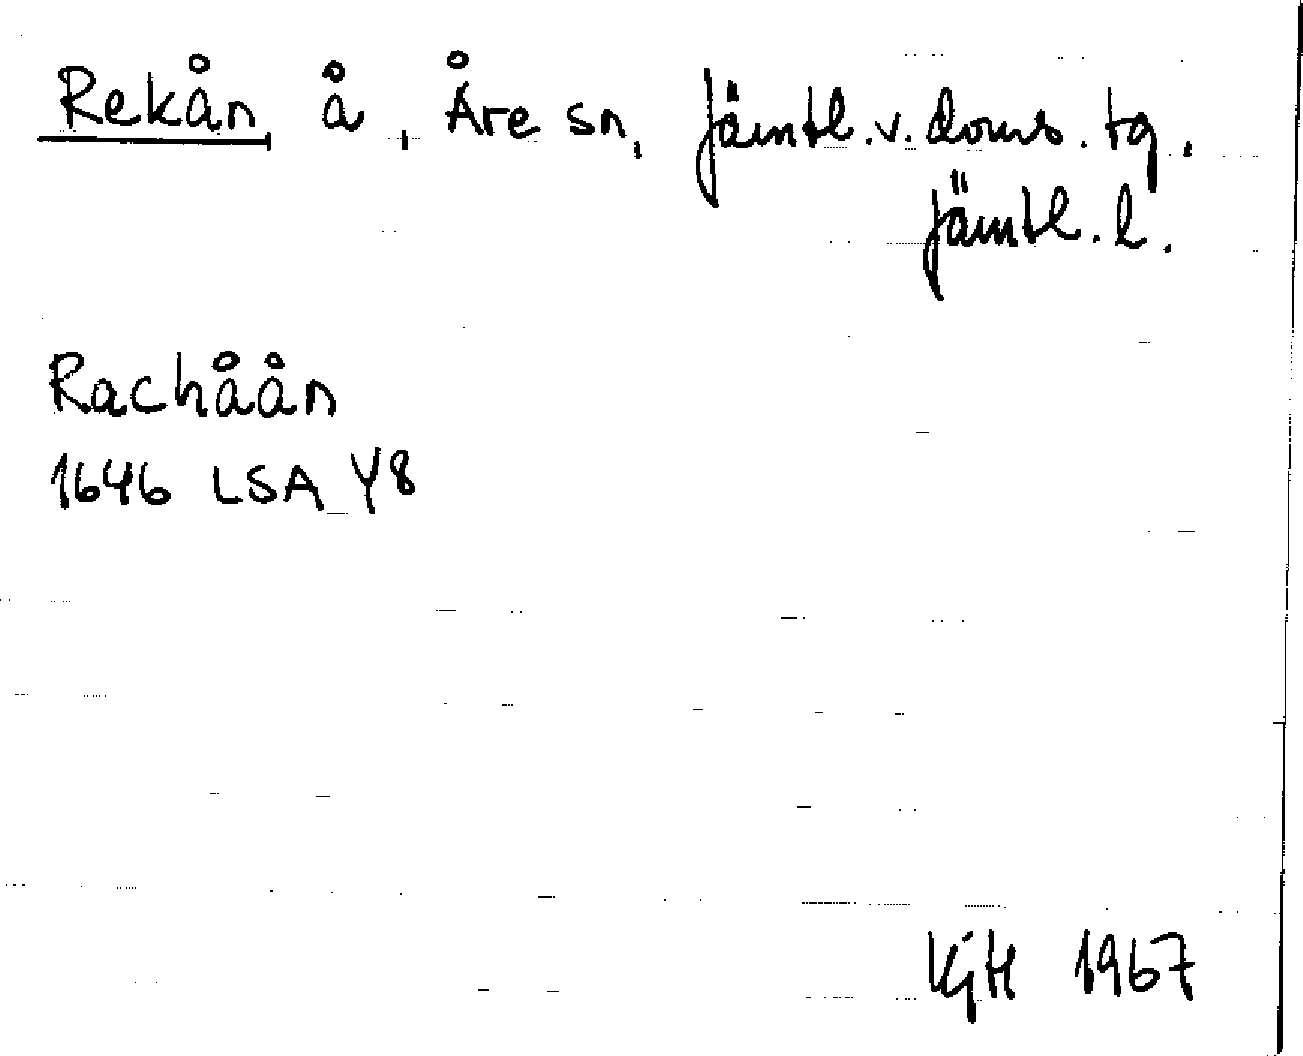 Rekån, å, Åre sn, Jämtl.v.doms.tg.
Jämtl.l.
Rachåån
1646 LSA Y8
KjH 1967